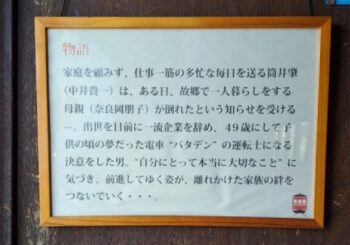 物語
家庭を顧みず、仕事一筋の多忙な毎日を送る筒井肇
（中井貴一）は、ある日、故郷で一人暮らしをする
母親（奈良岡朋子）が倒れたという知らせを受ける
―。出世を目前に一流企業を辞め、４９歳にして子
供の頃の夢だった電車“バタデン”の運転士になる
決意をした男。“自分にとって本当に大切なこと”に
気づき、前進してゆく姿が、離れかけた家族の絆を
つないでいく・・・。